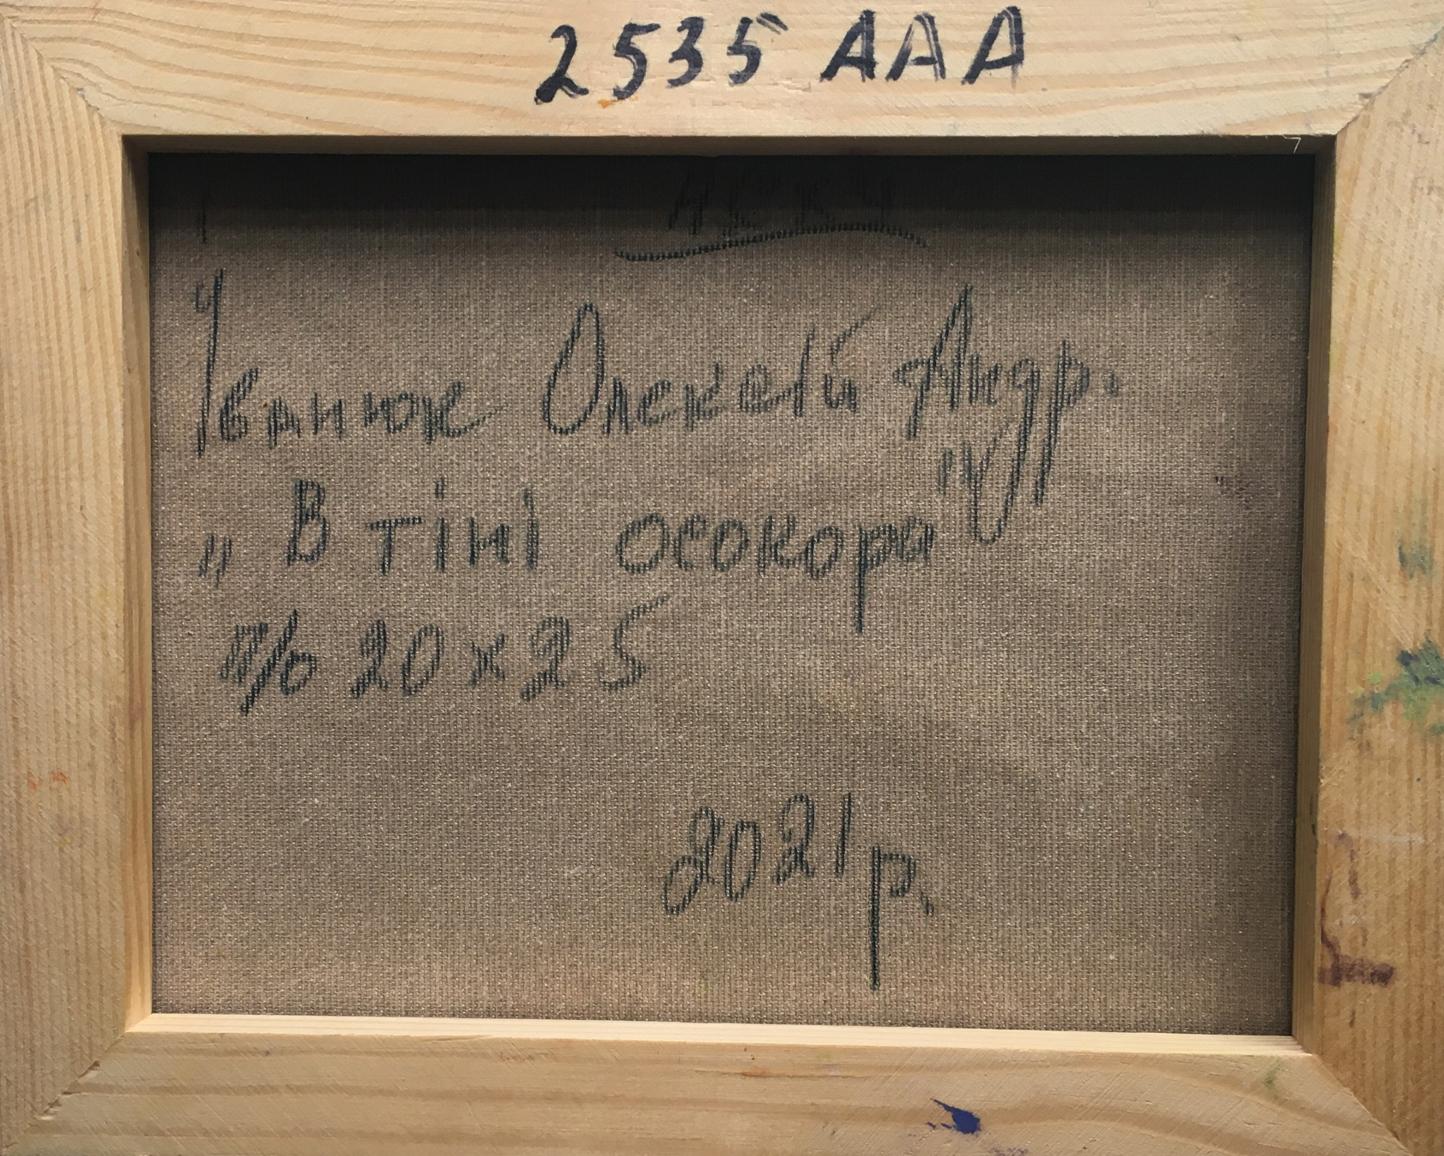 2535 AAA
Іванюк Олексій Андр.
„В тіні осокора"
п/о 20х25
2021р.